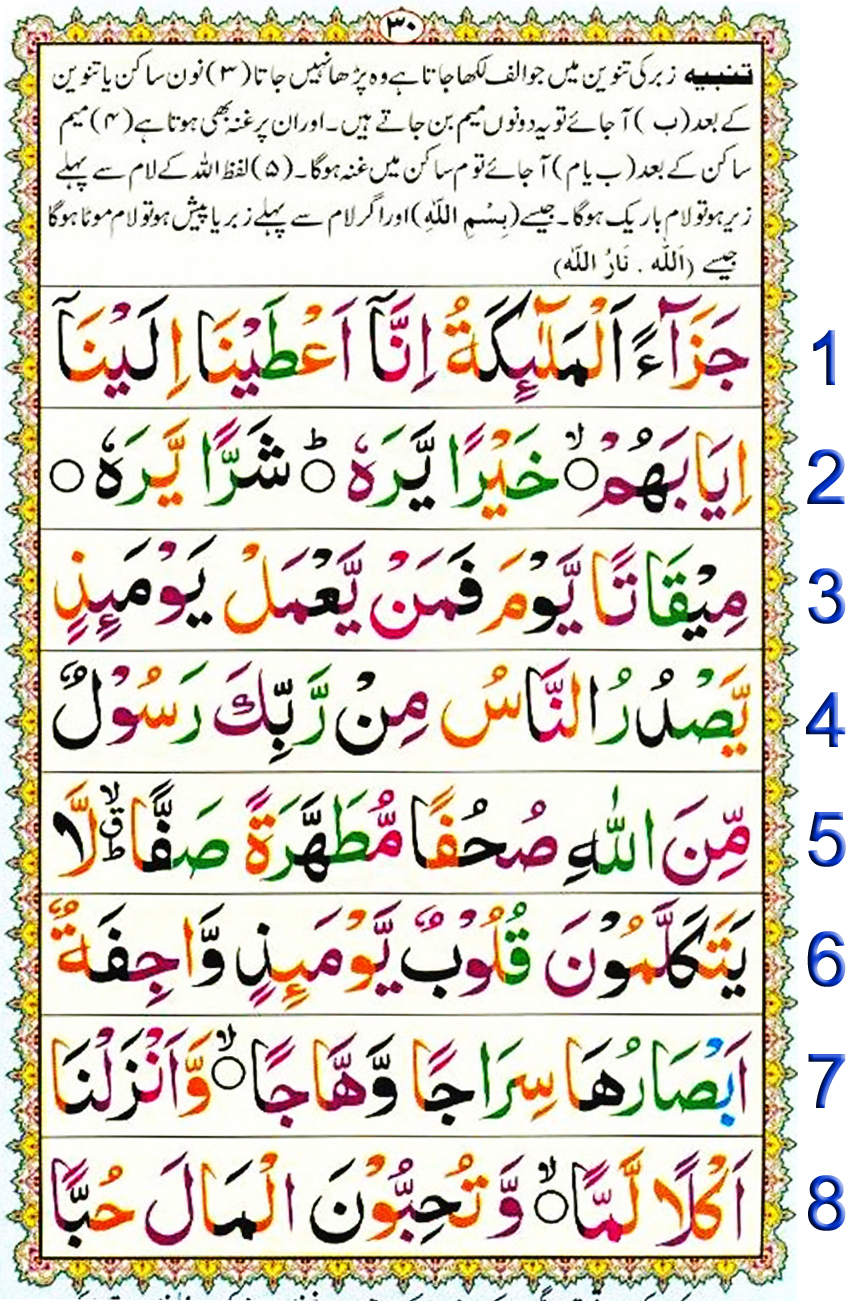 ٣٠
تنبیه زبر کی تنوین میں جو الف لکھا جاتا ہے وہ پڑھا نہیں جاتا (٣) نون ساکن یا تنوین
کے بعد (ب) آ جائے تو یہ دونوں میم بن جاتے ہیں۔ اور ان پر غنہ بھی ہوتا ہے (۴) میم
ساکن کے بعد (ب یا م) آ جائے تو م ساکن میں غنہ ہوگا۔ (۵) لفظ اللہ کے لام سے پہلے
زیر ہو تو لام باریک ہوگا۔ جیسے (بِسْمِ اللّٰهِ) اور اگر لام سے پہلے زبر یا پیش ہو تو لام موٹا ہوگا
جیسے (اَللّٰه ۔ نَارُ اللّٰه)
جَزَآءً اَلْمَلٰٓئِكَةُ اِنَّآ اَعْطَيْنَا اِلَيْنَآ 1
اِيَابَهُمْ ۙ○ خَيْرًا يَّرَهٗ ○ؕ شَرًّا يَّرَهٗ ○ 2
مِيْقَاتًا يَّوْمَ فَمَنْ يَّعْمَلْ يَوْمَئِذٍ 3
يَّصْدُرُ النَّاسُ مِنْ رَّبِّكَ رَسُوْلٌ 4
مِّنَ اللّٰهِ صُحُفًا مُّطَهَّرَةً صَفًّا ۙقؕ لَّا 5
يَتَكَلَّمُوْنَ قُلُوْبٌ يَّوْمَئِذٍ وَّاجِفَةٌ 6
اَبْصَارُهَا سِرَاجًا وَّهَّاجًا ۙ○ وَّاَنْزَلْنَا 7
اَكْلًا لَّمًّا ۙ○ وَّ تُحِبُّوْنَ الْمَالَ حُبًّا 8